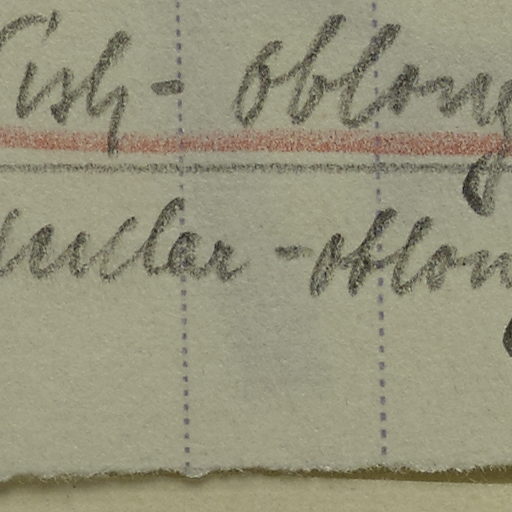 Fish - oblong
cular - oblon